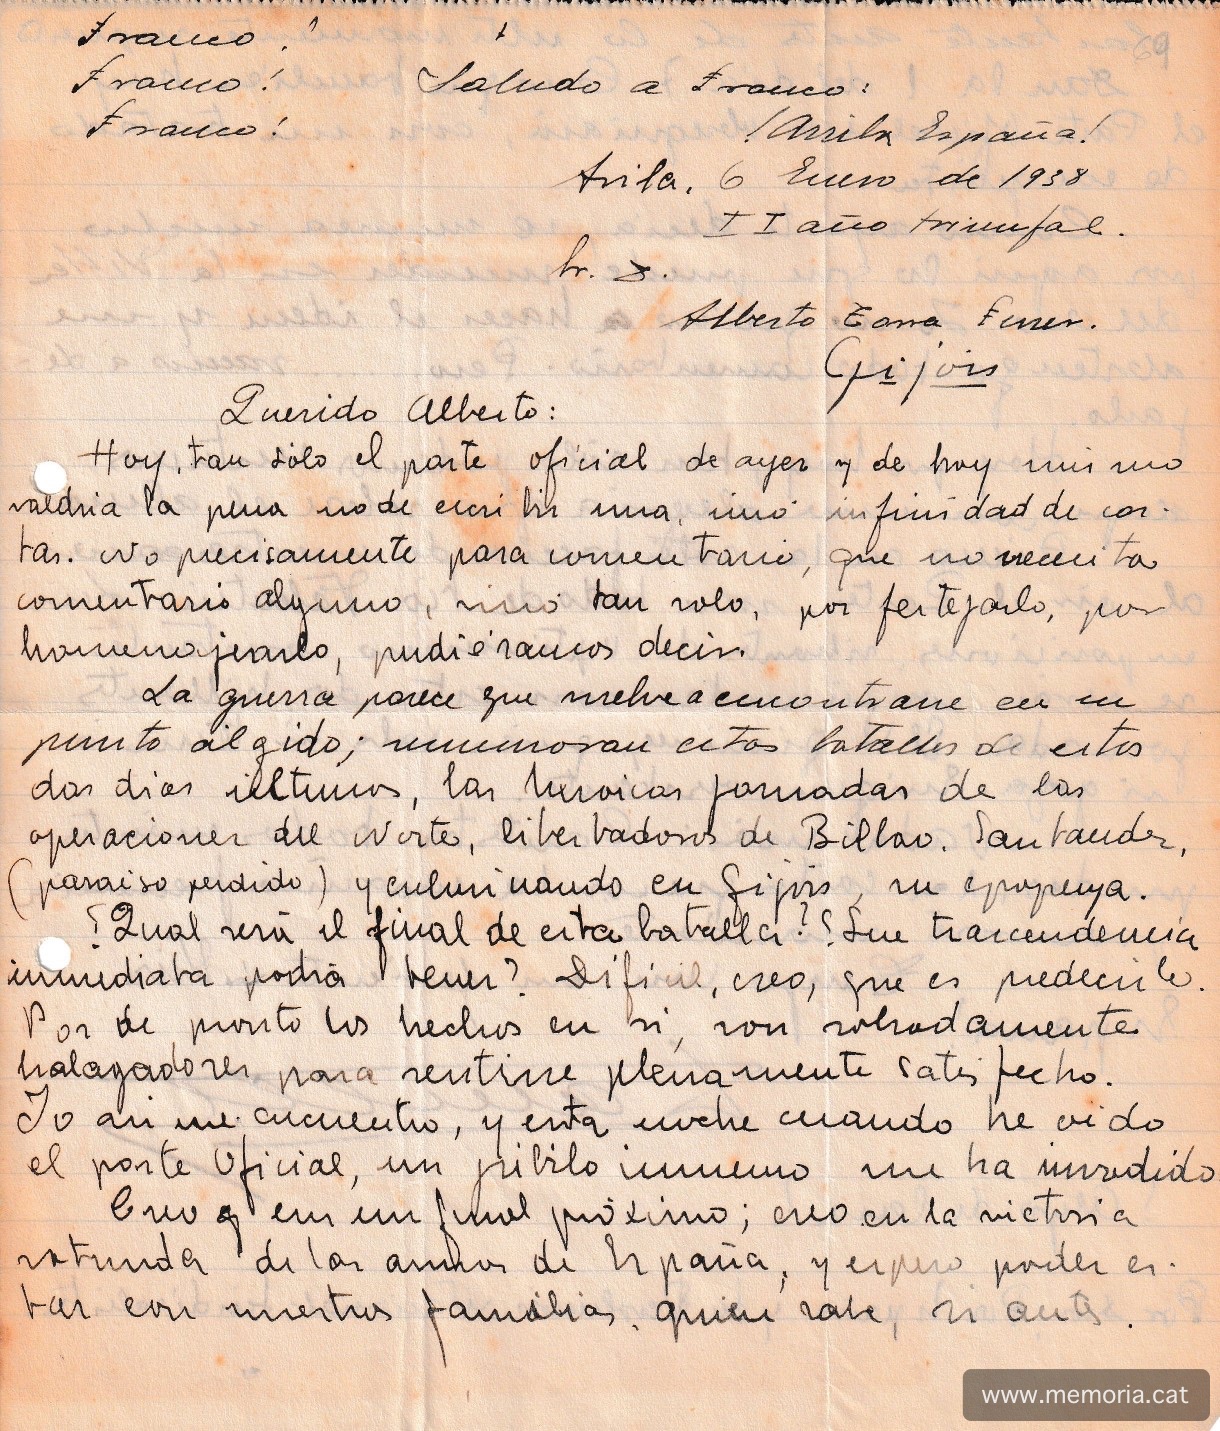 Franco!
Franco! Saludo a Franco:
Franco! ¡Arriba España!
Avila. 6 Enero de 1938
II año triunfal.
Sr. D.
Alberto Zorra Ferrer.
Gijón
Querido Alberto:
Hoy, tan sólo el parte oficial de ayer y de hoy mismo
valdria la pena no de escribir una, sinó infinidad de car-
tas. No precisamente para comentario, que no necesita
comentario alguno, sinó tan solo, por festejarlo, por
homenajearlo, pudiéramos decir.
La guerra parece que vuelve a encontrarse en un
punto álgido; rememoran estas batallas de estos
dos dias últimos, las heroicas jornadas de las
operaciones del Norte, libertadoras de Bilbao. Santander,
(paraiso perdido) y culminando en Gijón, su epopenya.
¿Qual será el final de esta batalla? ¿Que trascendencia
inmediata podrá tener? Dificil, creo, que es predecirlo.
Por de pronto los hechos en si, son sobradamente
halagadores para sentirse plenamente satisfecho.
Yo asi me encuentro, y esta noche cuando he oido
el parte Oficial, un júbilo inmenso me ha invadido
Creo q en un final próximo; creo en la victoria
rotunda de las armas de España, y espero poder es-
tar con nuestros familias, quien sabe, si antes.
69
www.memoria.cat